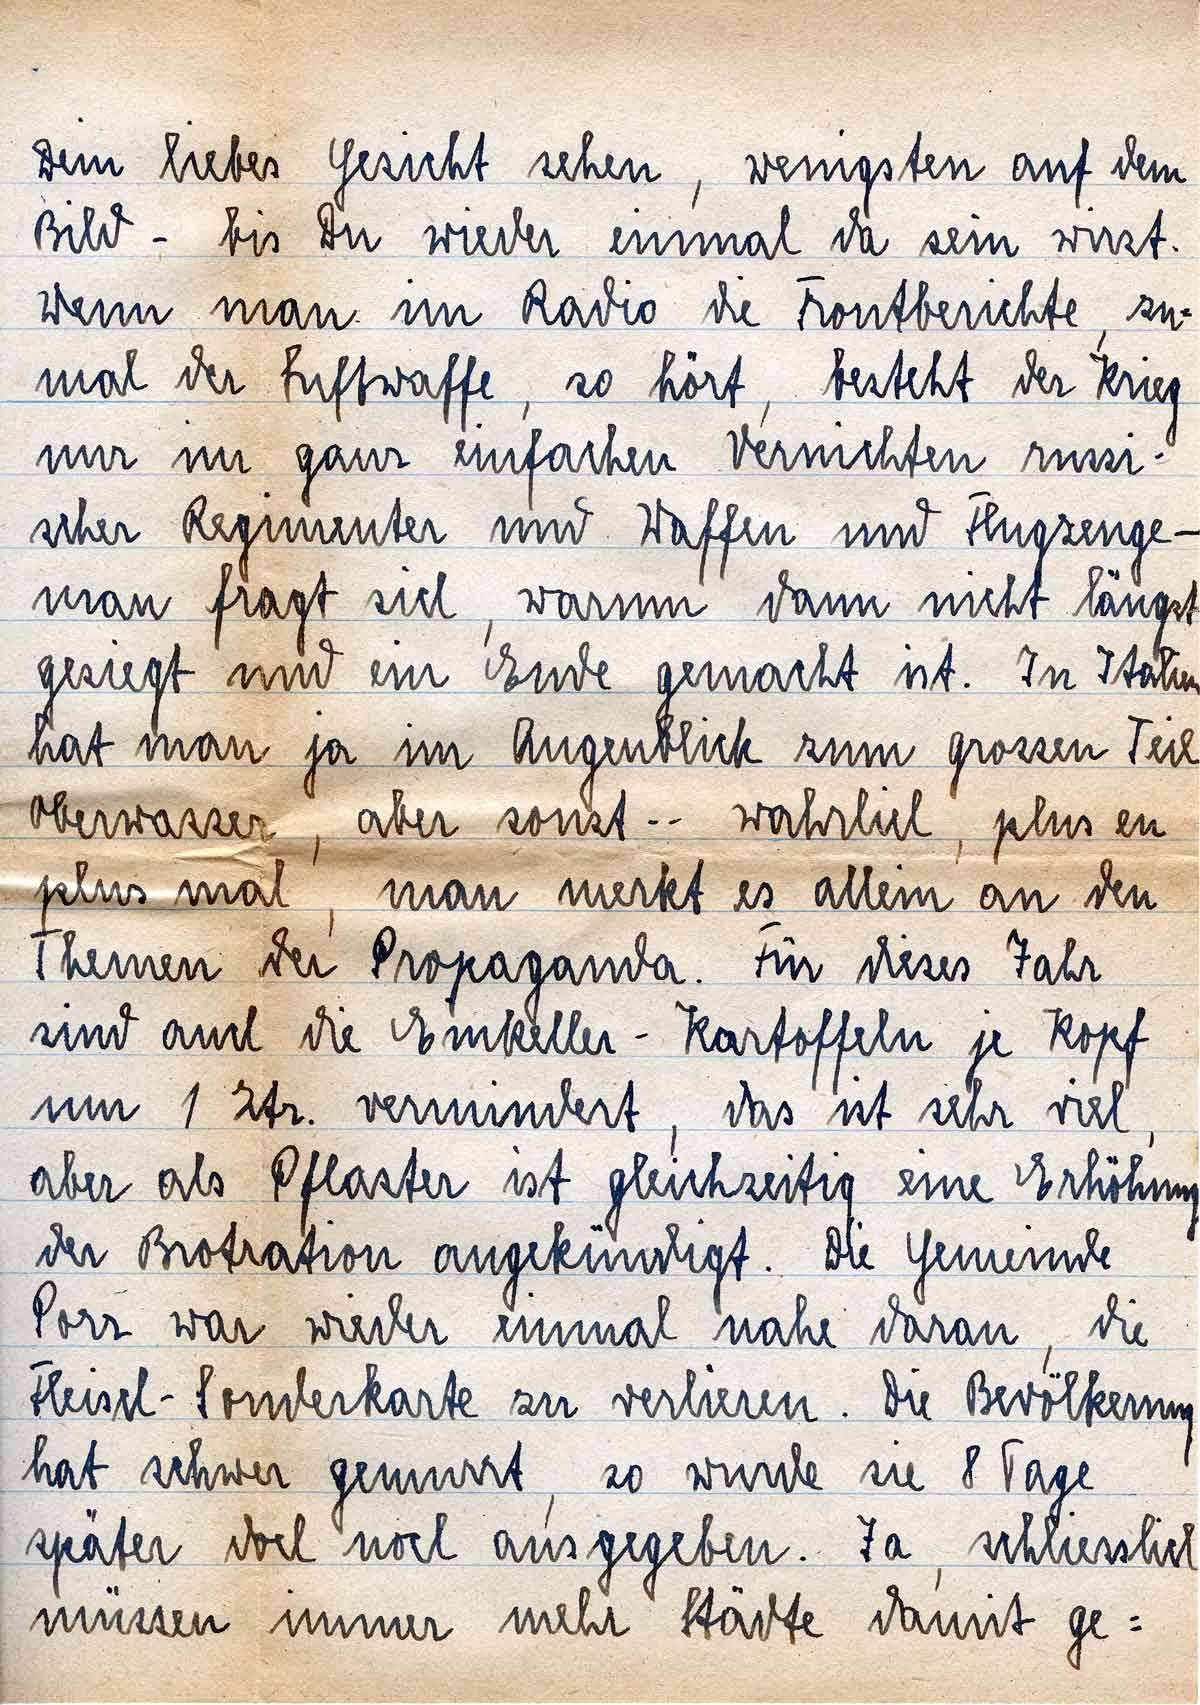 Dein liebes Gesicht sehen, wenigsten auf dem
Bild - bis Du wieder einmal da sein wirst.
Wenn man im Radio die Frontberichte, zu=
mal der Luftwaffe, so hört, besteht der Krieg
nur im ganz einfachen Vernichten russi-
scher Regimenter und Waffen und Flugzeuge -
man fragt sich, warum dann nicht längst
gesiegt und ein Ende gemacht ist. In Italien
hat man ja im Augenblick zum grossen Teil
Oberwasser, aber sonst -- wahrlich, plus en
plus mal, man merkt es allein an den
Themen der Propaganda. Für dieses Jahr
sind auch die Einkeller-Kartoffeln je Kopf
um 1 Ztr. vermindert, das ist sehr viel,
aber als Pflaster ist gleichzeitig eine Erhöhung
der Brotration angekündigt. Die Gemeinde
Porz war wieder einmal nahe daran, die
Fleisch-Sonderkarte zu verlieren. Die Bevölkerung
hat schwer gemurrt, so wurde sie 8 Tage
später doch noch ausgegeben. Ja, schliesslich
müssen immer mehr Städte damit ge=